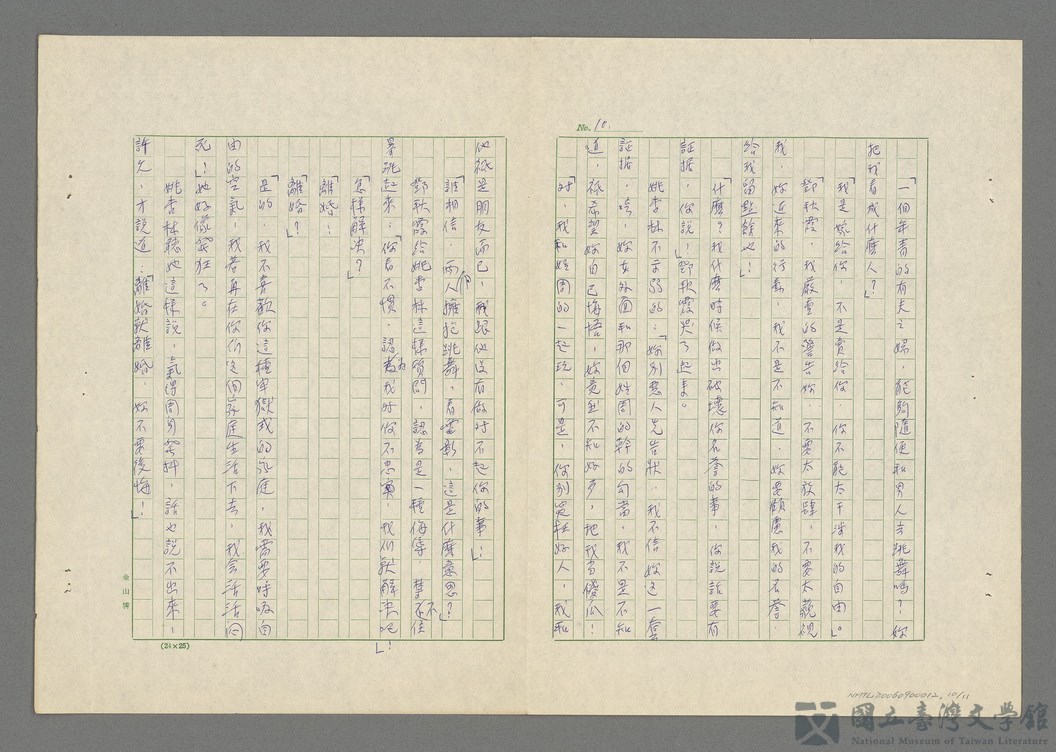 No. 10.
「一個年青的有夫之婦，能夠隨便和男人去跳舞嗎？妳
把我看成什麼人？」
「我是嫁給你，不是賣給你，你不能太干涉我的自由」。
「鄧秋霞，我嚴重的警告你，不要太放肆，不要太藐視
我，妳近來的行動，我不是不知道，妳要顧慮我的名譽，
給我留點餘地！」
「什麼？我什麼時候做出破壞你名譽的事，你說話要有
証据，你說！」鄧秋霞哭了起來。
姚杏林不示弱的：「妳別惡人先告狀，我不信妳这一套
証据，哼，妳在外面和那個姓周的幹的勾當，我不是不知
道，祇希望妳自己悔悟，妳竟然不知好歹，把我當傻瓜！
「对，我和姓周的一起玩，可是，你別冤枉好人，我和
他祇是朋友而已，我跟他没有做对不起你的事」！
「誰相信，兩個人擁抱跳舞，看電影，這是什麼意思？」
鄧秋霞給姚杏林這樣質問，認為是一種侮辱，禁不住
暴跳起來：「你看不慣，認為我对你不忠實，我们就解決吧」！
「怎樣解決？」
「離婚！」
「離婚？」
「是的，我不喜歡你這種牢獄式的家庭，我需要呼吸自
由的空氣，我若再在你们这個家庭生活下去，我会活活闷
死！」她好像發狂了。
姚杏林聽她這樣說，氣得周身發抖，話也說不出來，
許久，才說道：「離婚就離婚，妳不要後悔！」
金山牌
(24×25)
NMTL20060900012, 10/11
國立臺灣文學館
National Museum of Taiwan Literature